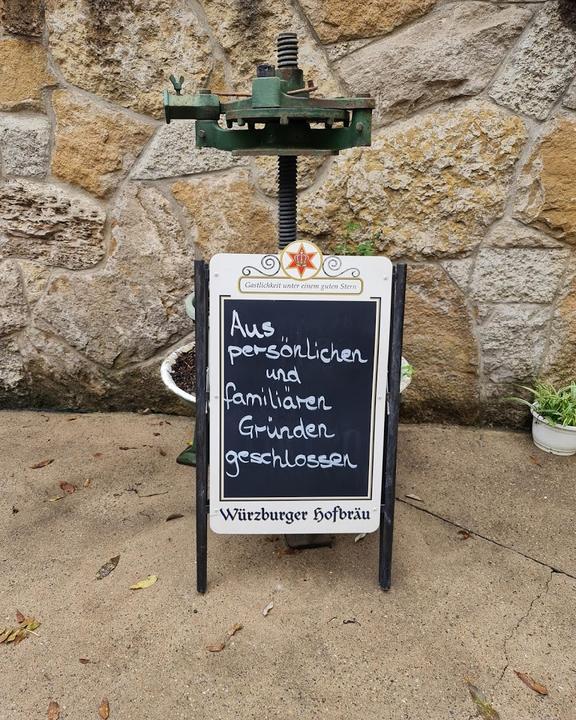 Gastlichkeit unter einem guten Stern
Aus
persönlichen
und
familiären
Gründen
geschlossen
Würzburger Hofbräu